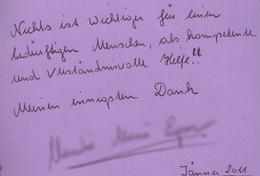 Nichts ist Wichtiger für einen
bedürftigen Menschen, als kompetente
und Verständnisvolle Hilfe!!
Meinen innigsten Dank
Jänner 2011